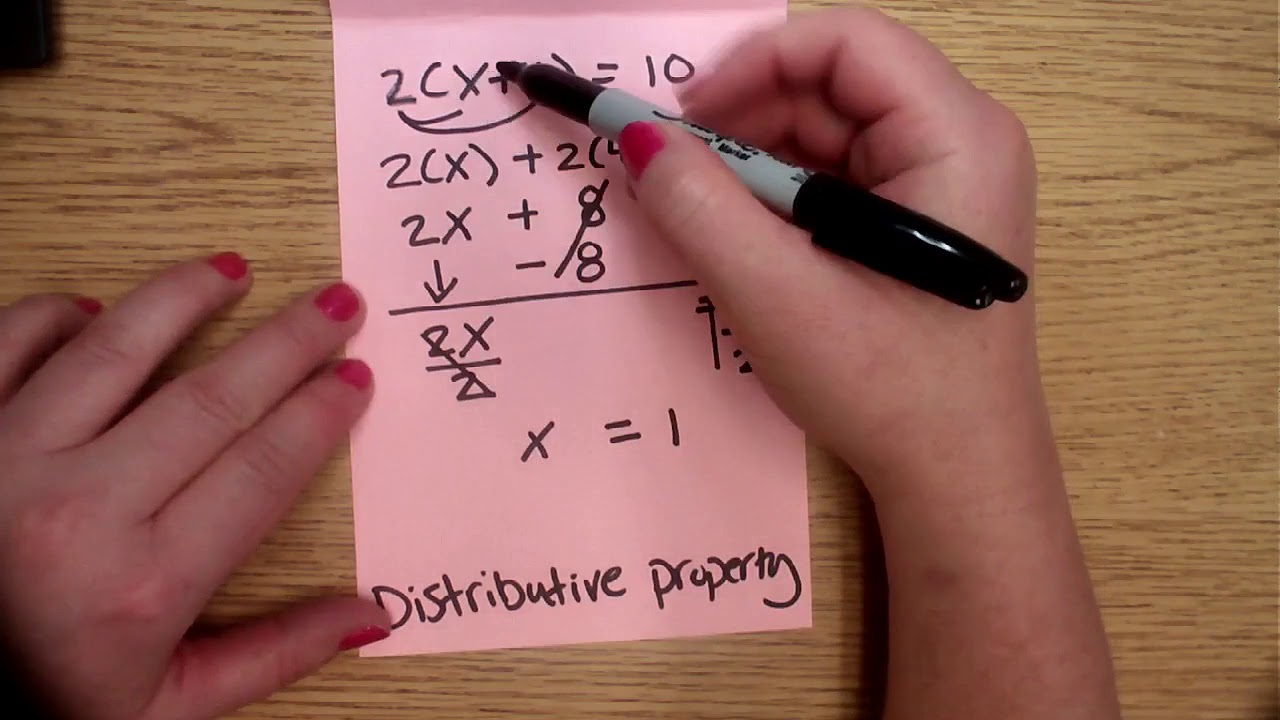 2(x+ ) = 10
2(x) + 2(4
2x + 8
↓ - 8
2x
2
x = 1
Distributive property